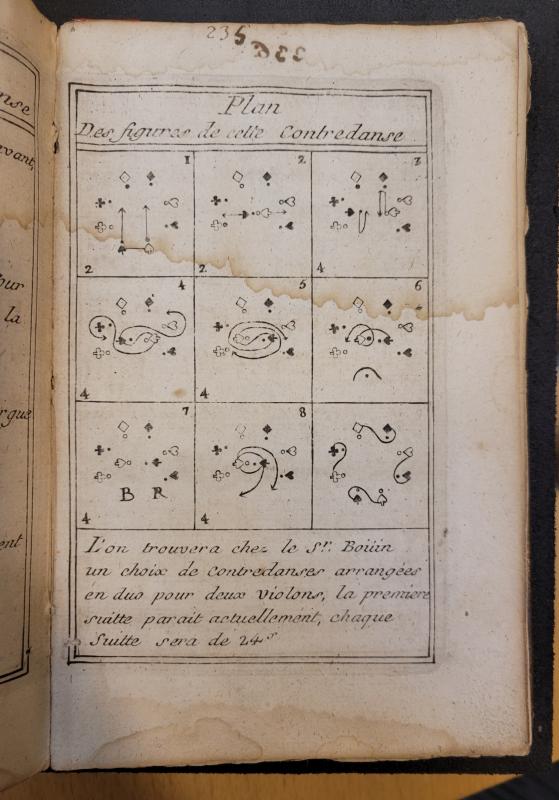 235
Plan
Des figures de cette Contredanse
1 2 3
2 2 4
4 5 6
4 4
7 8
B R
4 4
L'on trouvera chez le Sr. Boüin
un choix de contredanses arrangées
en duo pour deux violons, la premiere
suitte parait actuellement, chaque
Suitte sera de 24 s
nse
evant,
our
la
rgue
ent